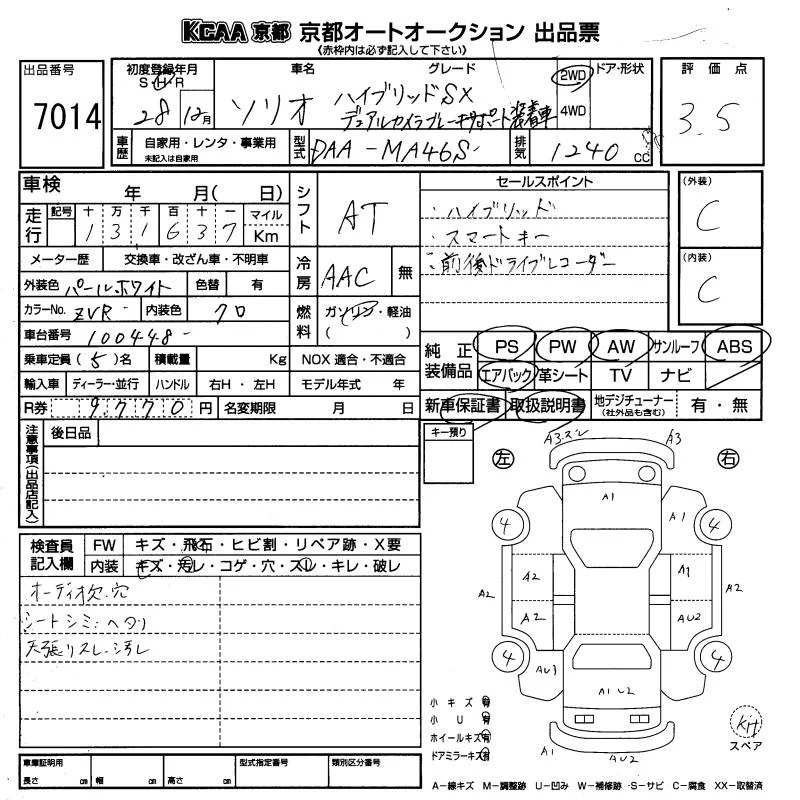 KCAA 京都 京都オートオークション 出品票
《赤枠内は必ず記入して下さい》
出品番号
7014
初度登録年月
S・H・R
28 12月
車名
ソリオ
グレード
ハイブリッドSX
デュアルカメラブレーキサポート装着車
2WD
4WD
ドア・形状
評価点
3.5
車歴
自家用・レンタ・事業用
未記入は自家用
型式
DAA-MA46S
排気
1240 cc
車検 年 月( 日)
走行
記号 十 万 千 百 十 一 マイル
1 3 1 6 3 7 Km
メーター歴 交換車・改ざん車・不明車
外装色 パールホワイト 色替 有
カラーNo. ZVR 内装色 クロ
車台番号 100448
乗車定員 (5)名 積載量 Kg NOX 適合・不適合
輸入車 ディーラー・並行 ハンドル 右H・左H モデル年式 年
R券 9770円 名変期限 月 日
シフト AT
冷房 AAC 無
燃料 ガソリン・軽油
( )
セールスポイント
・ハイブリッド
・スマートキー
・前後ドライブレコーダー
(外装)
C
(内装)
C
純正装備品
PS PW AW サンルーフ ABS
エアバック 革シート TV ナビ
新車保証書 取扱説明書 地デジチューナー(社外品も含む) 有・無
注意事項(出品店記入)
後日品
キー預り
検査員記入欄
FW キズ・飛石・ヒビ割・リペア跡・X要
内装 キズ・汚レ・コゲ・穴・スレ・キレ・破レ
オーディオ欠.穴
シートシミ.ヘタリ
天張リスレ.汚レ
左
右
A3.ズレ A3
A1
A1
4 4
A2
A2
A1
A2
A2
A2
AU2
4 4
AU1
A1U2
A1
AU2
小キズ 有
小U 有
ホイールキズ 有
ドアミラーキズ 有
Kit
スペア
車庫証明用
長さ cm 幅 cm 高さ cm
型式指定番号
類別区分番号
A-線キズ M-調整跡 U-凹み W-補修跡 S-サビ C-腐食 XX-取替済